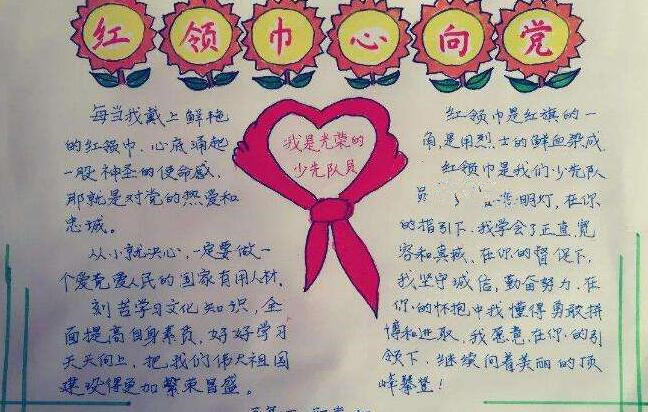 红领巾心向党
每当我戴上鲜艳
的红领巾,心底涌起
一股神圣的使命感,
那就是对党的热爱和
忠诚。
从小就决心,一定要做一
个爱党爱人民的国家有用人材。
刻苦学习文化知识,全
面提高自身素质,好好学习
天天向上,把我们伟大祖国
建设得更加繁荣昌盛。
我是光荣的
少先队员
红领巾是红旗的一
角,是用烈士的鲜血染成
红领巾是我们少先队
员 明灯,在你
的指引下,我学会了正直,宽
容和真诚、在你的督促下,
我坚守诚信,勤奋努力.在
你的怀抱中我懂得勇敢拼
搏和进取,我愿意在你的引
领下,继续向着美丽的顶
峰攀登!